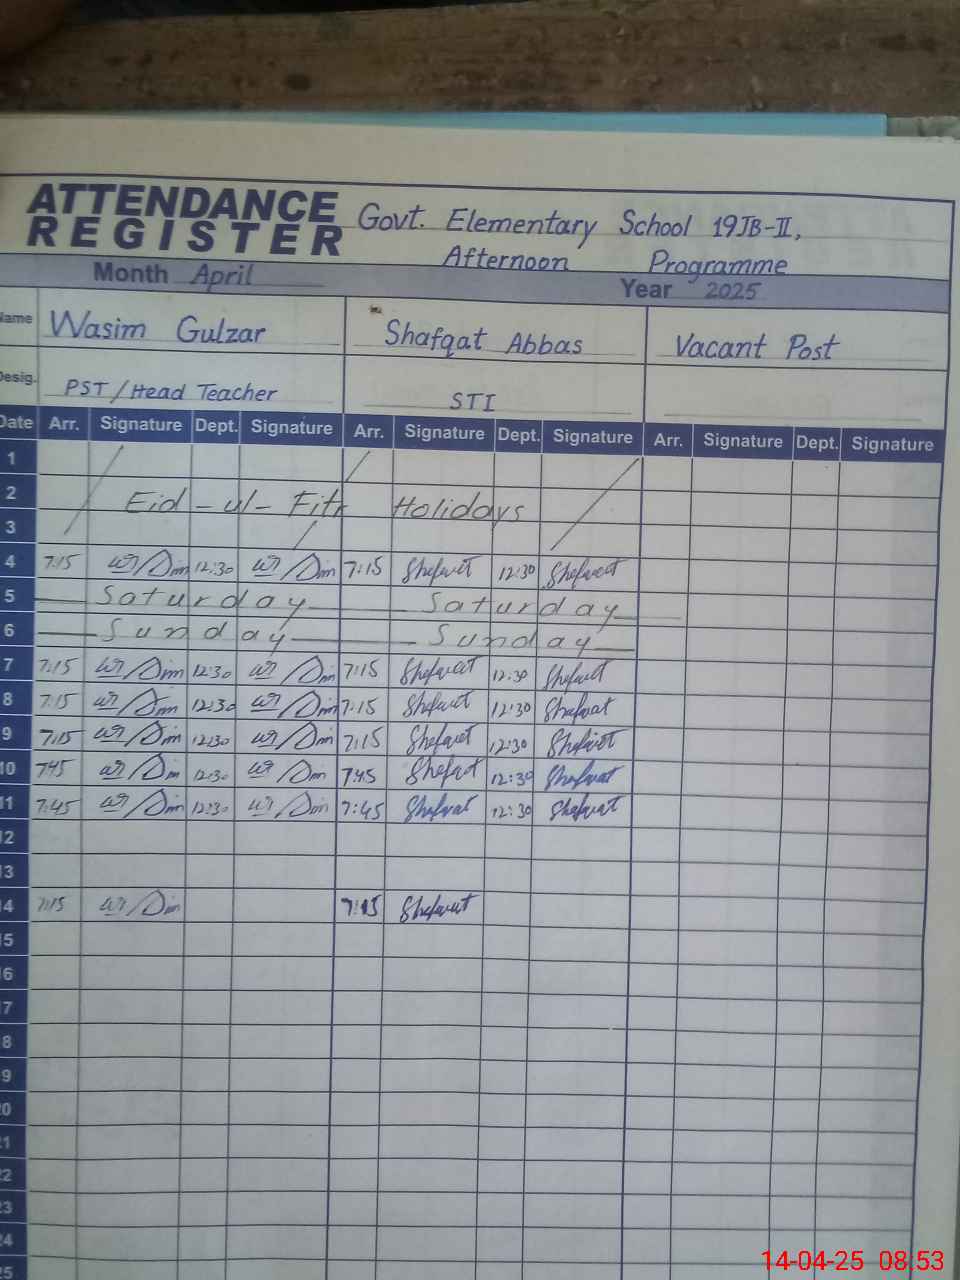 ATTENDANCE REGISTER Govt. Elementary School 19JB-II,
Afternoon Programme
Month April Year 2025
Name Wasim Gulzar Shafqat Abbas Vacant Post
Desig. PST/Head Teacher STI
Date Arr. Signature Dept. Signature Arr. Signature Dept. Signature Arr. Signature Dept. Signature
1
2 Eid-ul-Fitr Holidays
3
4 7:15 12:30 7:15 12:30
5 Saturday Saturday
6 Sunday Sunday
7 7:15 12:30 7:15 12:30
8 7:15 12:30 7:15 12:30
9 7:15 12:30 7:15 12:30
10 7:45 12:30 7:45 12:30
11 7:45 12:30 7:45 12:30
12
13
14 7:15 7:15
15
16
17
18
19
20
21
22
23
24
25
14-04-25 08:53